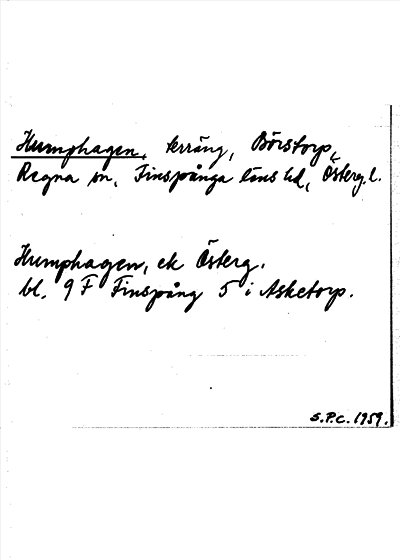 Humphagen, terräng, Börstorp,
Regna sn, Finspånga läns hd, Österg. l.
Humphagen, ek Österg.
bl. 9 F Finspång 5 i Asketorp.
S.P.C. 1959.